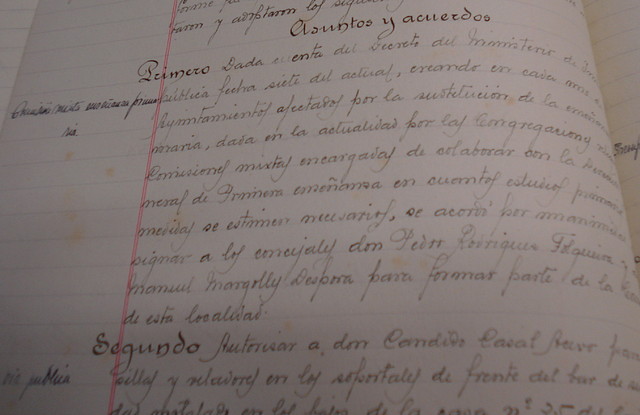 taron y adoptaron los siguientes
Asuntos y acuerdos
Primero Dada cuenta del Decreto del Ministerio de Ins
pública fecha siete del actual, creando en cada uno
Ayuntamientos afectados por la sustitución de la enseñan
maria, dada en la actualidad por las Congregaciones
Comisiones mixtas encargadas de colaborar con la
neral de Primera enseñanza en cuantos estudios
medidas se estimen necesarios, se acordó por unanimidad
signar a los concejales don Pedro Rodriguez Filgueira y
manuel Margolles Despora para formar parte de la
de esta localidad.
Segundo Autorisar a don Candido Casal para
sillas y veladores en los soportales de frente del bar de su
instalado en los bajos de la casa nº 35 de la
Comisión mixta enseñanza prima
ria
via publica